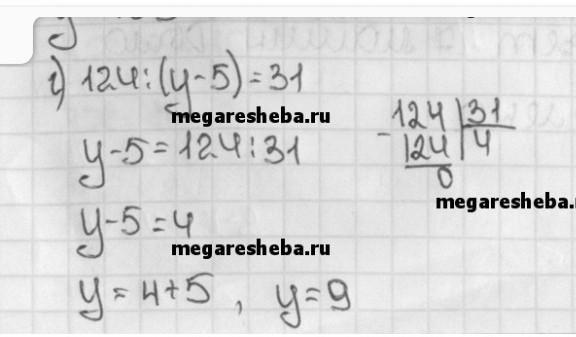 г) 124:(y-5)=31
megaresheba.ru
y-5=124:31
y-5=4
megaresheba.ru
y=4+5, y=9
-124|31
124|4
0
megaresheba.ru